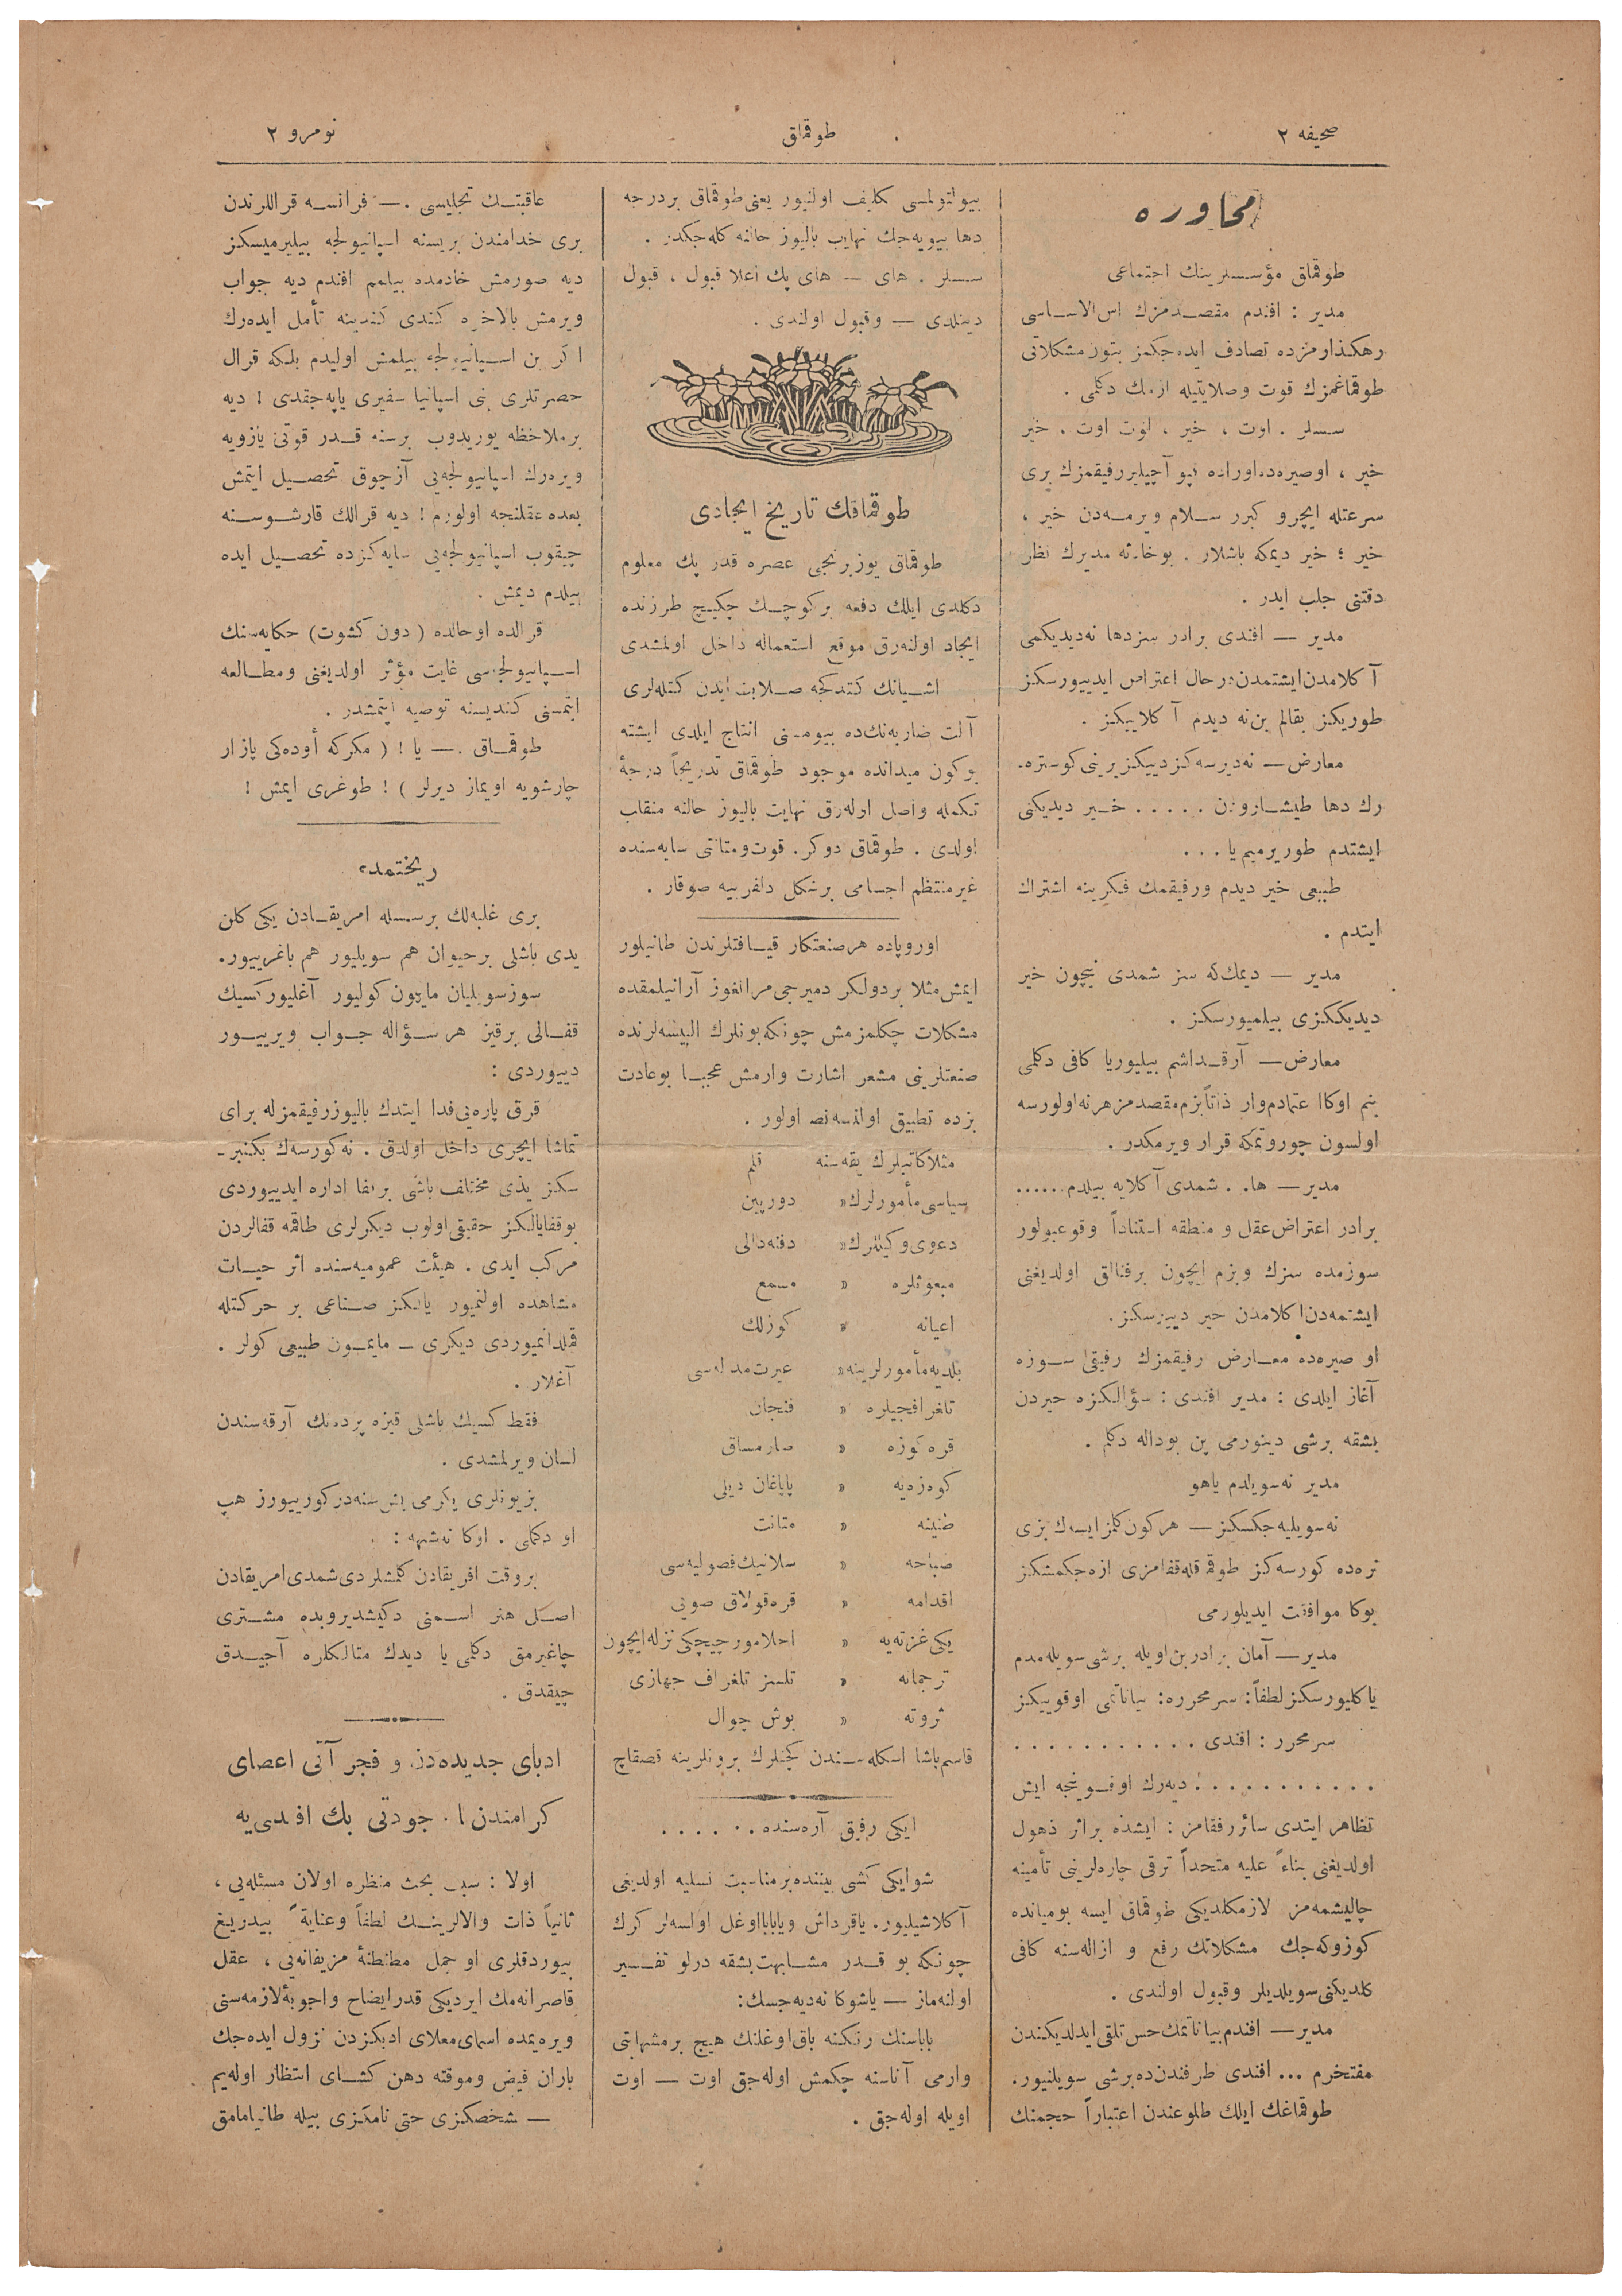 صحیفه ٢
طوقماق
نومرو ٢
محاوره
طوقماق مؤسسلرینك اجتماعی
مدیر : افندم مقصدمزك اس الاساسی
رهكذارمزده تصادف ایده جكمز بتون مشكلاتی
طوقماغمزك قوت وصلابتیله ازمك دكلمی .
سسلر . اوت ، خیر ، اوت اوت . خیر
خیر ، اوصیره ده اوراده قپو آچیلیر رفیقمزك بری
سرعتله ایچرو كیرر سلام ویرمه دن خیر ،
خیر ؛ خیر دیمكه باشلار . بوحادثه مدیرك نظر
دقتنی جلب ایدر .
مدیر — افندی برادر سزدها نه دیدیكمی
آكلامدن ایشتمدن درحال اعتراض ایدییورسكز
طوریكز بقالم بن نه دیدم آكلاییكز .
معارض — نه دیرسه كز دییكز برینی كوستره‌
رك دها طیشاروزن . . . . . خیر دیدیكنی
ایشتدم طوریرمییم یا . . .
طبیعی خیر دیدم ورفیقمك فكرینه اشتراك
ایتدم .
مدیر — دیمك كه سز شمدی نیچون خیر
دیدیككزی بیلمیورسكز .
معارض — آرقداشم بیلیوریا كافی دكلمی
بنم اوكا اعتمادم وار ذاتاً بزم مقصدمز هرنه اولورسه
اولسون چوروتمكه قرار ویرمكدر .
مدیر — ها . . شمدی آكلایه بیلدم ......
برادر اعتراض عقل و منطقه استناداً وقوعبولور
سوزمده سزك وبزم ایچون برفنالق اولدیغنی
ایشتمه دن اكلامدن خیر دییرسكز .
او صیره ده معارض رفیقمزك رفیقی سوزه
آغاز ایلدی : مدیر افندی : سؤالكزه خیردن
بشقه برشی دینورمی بن بوداله دكلم .
مدیر نه سویلدم یاهو
نه سویلیه جكسكز — هركون كلمز ایسه ك بزی
نره ده كورسه كز طوقماقله قفامزی ازه جكمشكز
بوكا موافقت ایدیلورمی
مدیر — آمان برادر بن اویله برشی سویله مدم
یاكلیورسكز لطفاً : سرمحرره : بیاناتمی اوقوییكز
سرمحرر : افندی . . . . . . . . . . .
. . . . . . . . . . . : دیه رك اوقوینجه ایش
تظاهر ایتدی سائر رفقامز : ایشده براثر ذهول
اولدیغنی بناءً علیه متحداً ترقی چاره لرینی تأمینه
چالیشمه مز لازمكلدیكی طوقماق ایسه بومیانده
كوزوكه جك مشكلاتك رفع و ازاله سنه كافی
كلدیكنی سویلدیلر وقبول اولندی .
مدیر — افندم بیاناتمك حس تلقی ایدلدیكندن
مفتخرم ... افندی طرفندن ده برشی سویلنیور .
طوقماغك ایلك طلوعندن اعتباراً حجمنك
بیولتولمسی تكلیف اولنیور یعنی طوقماق بردرجه
دها بیویه جك نهایت بالیوز حالنه كله جكدر .
سسلر . های — های پك اعلا قبول ، قبول
دینلدی — وقبول اولندی .
طوقماقك تاریخ ایجادی
طوقماق یوز برنجی عصره قدر پك معلوم
دكلدی ایلك دفعه بر كوچك چكیچ طرزنده
ایجاد اولنه رق موقع استعماله داخل اولمشدی
اشیانك كتدكجه صلابت ایدن كتله لری
آلت ضاربه نك ده بیومسنی انتاج ایلدی ایشته
بوكون میدانده موجود طوقماق تدریجاً درجهٔ
تكمله واصل اوله رق نهایت بالیوز حالنه منقلب
اولدی . طوقماق دوكر . قوت ومتانتی سایه سنده
غیرمنتظم اجسامی برشكل دلفریبه صوقار .
اوروپاده هرصنعتكار قیافتلرندن طانیلور
ایمش مثلا بردولكر دمیرجی مرانغوز آرانیلمقده
مشكلات چكلمزمش چونكه بونلرك البسه لرنده
صنعتلرینی مشعر اشارت وارمش عجبا بوعادت
بزده تطبیق اولنسه نصل اولور .
مثلا كاتبلرك یقه سنه قلم
سیاسی مأمورلرك « دوربین
دعوی وكیللرك « دفنه دالی
مبعوثلره « مسمع
اعیانه « كوزلك
بلدیه مأمورلرینه « عبرت مدلیه سی
تلغرافجیلره « فنجان
قره كوزه « صارمساق
كوه زه یه « پاپاغان دیلی
طنینه « متانت
صباحه « سلانیك فصولیه سی
اقدامه « قره قولاق صویی
یكی غزته یه « اخلامور چیچكی نزله ایچون
ترجمانه « تلسز تلغراف جهازی
ثروته « بوش چوال
قاسم پاشا اسكله سندن كچنلرك برونلرینه قصقاچ
ایكی رفیق آره سنده . . . . . .
شوایكی كشی بیننده برمناسبت نسلیه اولدیغی
آكلاشیلیور . یاقرداش ویابابا اوغل اولسه لر كرك
چونكه بو قدر مشابهت بشقه درلو تفسیر
اولنه ماز — یاشوكا نه دیه جسك :
باباسنك رنكنه باق اوغلنك هیچ برمشابهتی
وارمی آناسنه چكمش اوله جق اوت — اوت
اویله اوله جق .
عاقبتك تجلیسی . — فرانسه قراللرندن
بری خدامندن بریسنه اسپانیولجه بیلیرمیسكز
دیه صورمش خادمده بیلمم افندم دیه جواب
ویرمش بالاخره كندی كندینه تأمل ایده رك
اكر بن اسپانیولجه بیلمش اولیدم بلكه قرال
حضرتلری بنی اسپانیا سفیری یاپه جقدی ! دیه
برملاحظه یوریدوب برسنه قدر قوتی یازویه
ویره رك اسپانیولجه یی آزچوق تحصیل ایتمش
بعده عقلنجه اولورم ! دیه قرالك قارشوسنه
چیقوب اسپانیولجه یی سایه كزده تحصیل ایده
بیلدم دیمش .
قرالده اوحالده ( دون كشوت ) حكایه سنك
اسپانیولجه سی غایت مؤثر اولدیغنی ومطالعه
ایتمسنی كندیسنه توصیه ایتمشدر .
طوقماق . — یا ! ( مكركه أوده كی پازار
چارشویه اویماز دیرلر ) ! طوغری ایمش !
ریختمده
بری غلبه لك برسسله امریقادن یكی كلن
یدی باشلی برحیوان هم سویلیور هم باغرییور .
سوزسویلیان مایمون كولیور آغلیور كسیك
قفالی برقیز هر سؤاله جواب ویرییور
دییوردی :
قرق پاره یی فدا ایتدك بالیوز رفیقمزله برای
تماشا ایچری داخل اولدق . نه كورسه ك بكنیر‌
سكز یدی مختلف باشی برقفا اداره ایدییوردی
بوقفایالكز حقیقی اولوب دیكرلری طاقمه قفالردن
مركب ایدی . هیئت عمومیه سنده اثر حیات
مشاهده اولنمیور یالكز صناعی بر حركتله
قلدانمیوردی دیكری — مایمون طبیعی كولر .
آغلار .
فقط كسیك باشلی قیزه پرده نك آرقه سندن
لسان ویرلمشدی .
بز بونلری یكرمی بش سنه در كورییورز هپ
او دكلمی . اوكا نه شبهه :
بروقت افریقادن كلمشلردی شمدی امریقادن
اصل هنر اسمنی دكیشدیروبده مشتری
چاغیرمق دكلمی یا دیدك متالكلره آجیدق
چیقدق .
ادبای جدیده دن و فجر آتی اعضای
كرامندن ا . جودتی بك افندی یه
اولا : سبب بحث منظره اولان مسئله یی ،
ثانیاً ذات والالرینك لطفاً وعنایةً بیدریغ
بیوردقلری او جمل مطنطنهٔ مزیفانه یی ، عقل
قاصرانه مك ایردیكی قدر ایضاح واجوبهٔ لازمه سنی
ویره یمده اسمای معلای ادبكزدن نزول ایده جك
باران فیض وموقته دهن كشای انتظار اوله یم
— شخصكزی حتی نامكزی بیله طانیامامق